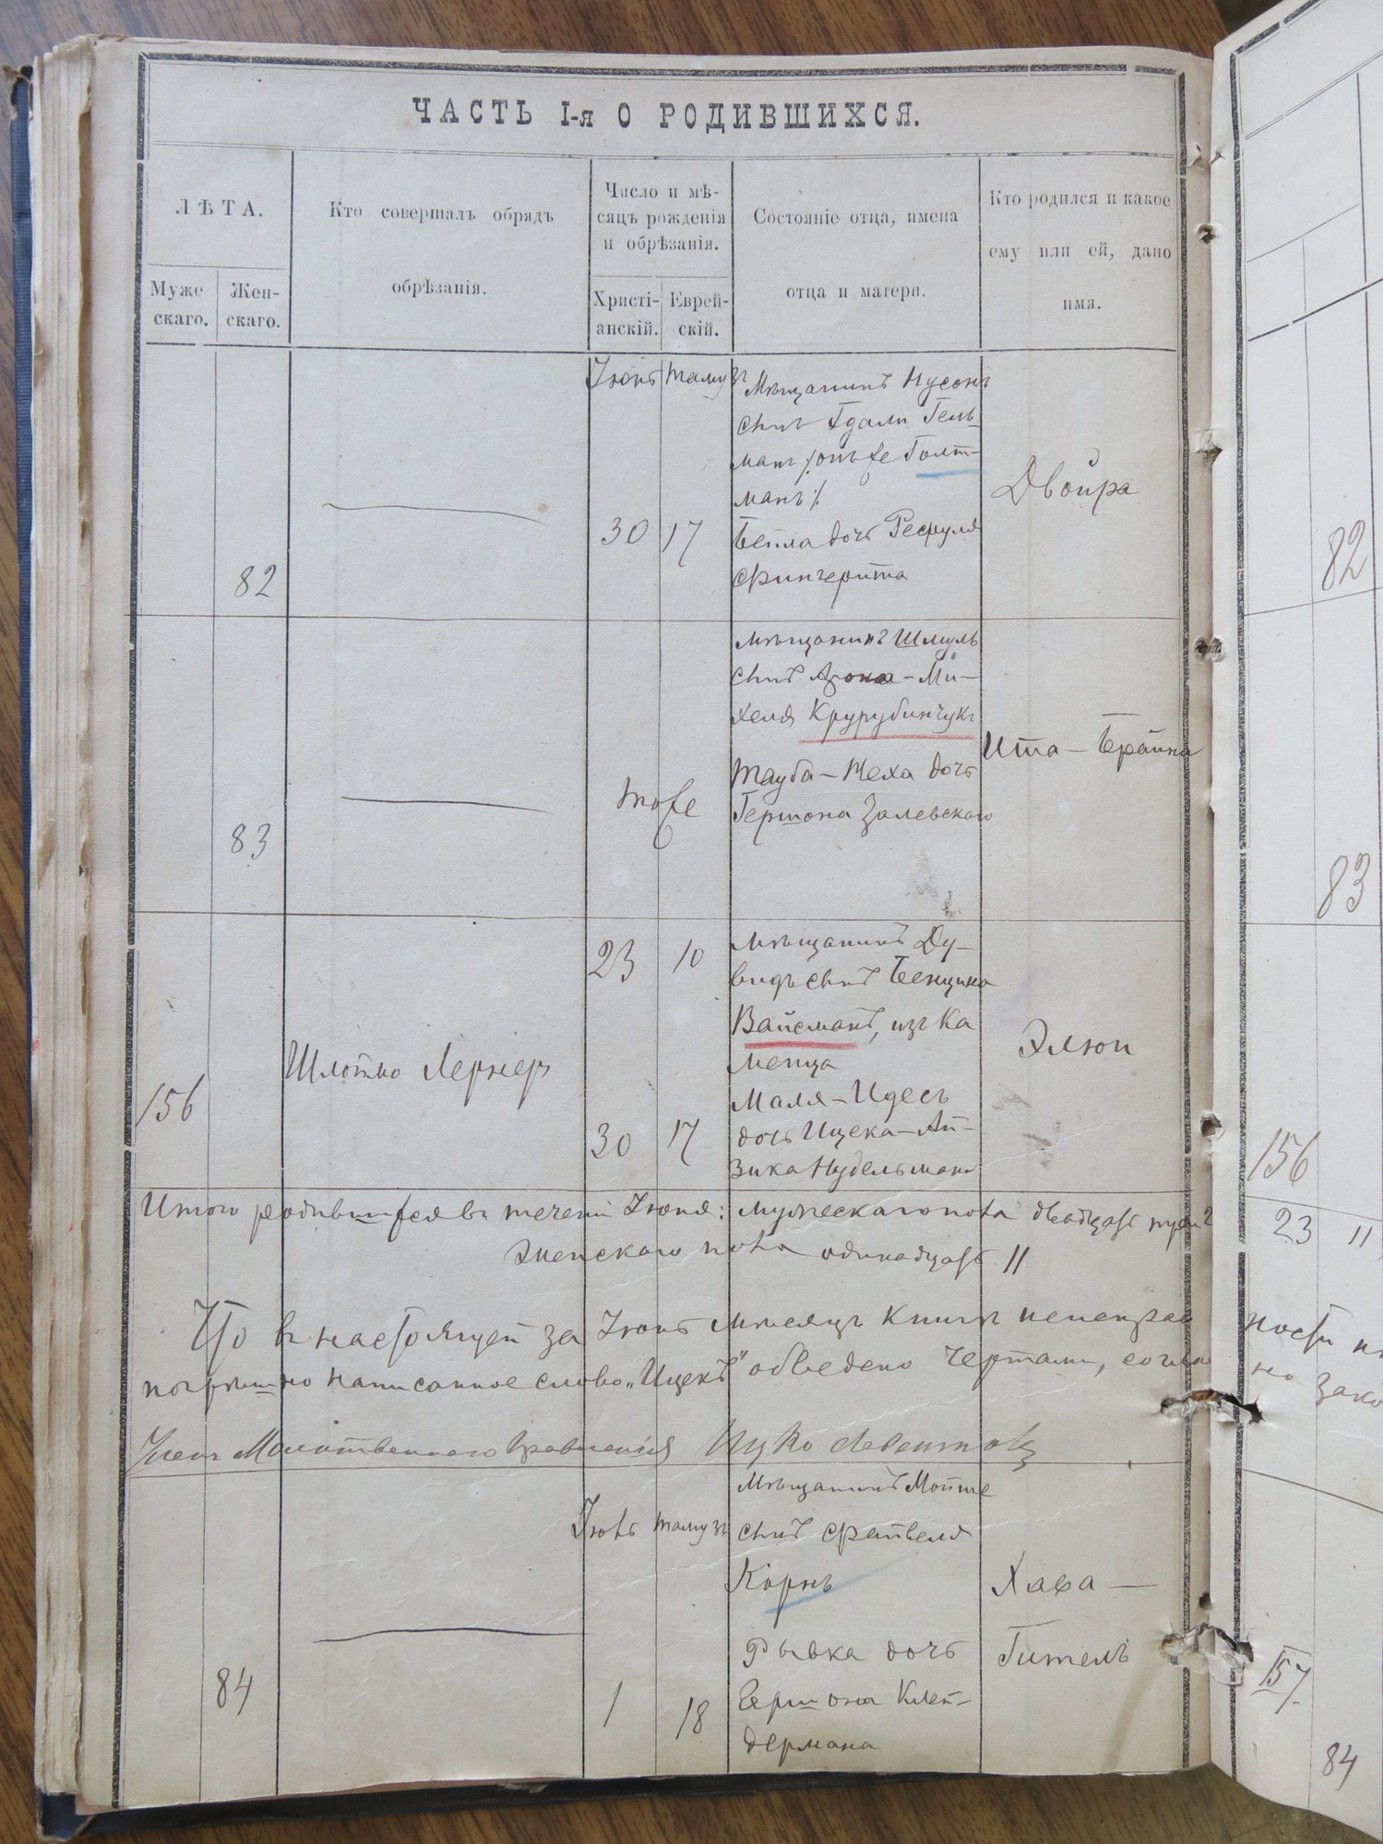 ЧАСТЬ I-я О РОДИВШИХСЯ.
ЛѢТА.
Муже
скаго.
Жен-
скаго.
Кто совершалъ обрядъ
обрѣзанія.
Число и мѣ-
сяцъ рожденія
и обрѣзанія.
Христі-
анскій.
Еврей-
скій.
Состояніе отца, имена
отца и матери.
Кто родился и какое
ему или ей, дано
имя.
82
Іюнь
30
Тамузъ
17
Мѣщанинъ Нусонъ
сынъ Гдали Гель-
манъ /онъ же Голт-
манъ/
Бейла дочь
Фингерита
Двойра
83
тоже
Мѣщанинъ Шмуль
сынъ Арона-Ми-
хеля
Тауба-Неха дочь
Гершона Залевскаго
Ита-Брайна
156
Шлоймо Лернеръ
23
10
30
17
Мѣщанинъ Ду-
видъ сынъ Бенциона
Вайсманъ, изъ Ка
менца
Маля-Идесъ
дочь Ицека-Ай-
зика Нудельмана
Элюи
Итого родившихся въ теченіи Іюня: мужескаго пола двадцать три
женскаго пола одинадцать 11
Что въ настоящей за Іюнь мѣсяцъ книгѣ
погрѣшно написанное слово „Ицекъ" обведено чертами, согла
Членъ Молитвеннаго Правленія Ицко
84
Іюль
1
Тамузъ
18
Мѣщанинъ Мойше
сынъ Файвеля
Корнъ
Рывка дочь
Гершона Клей-
дермана
Хава-
Гитель
82
83
156
23 11
ности
но зако
157
84